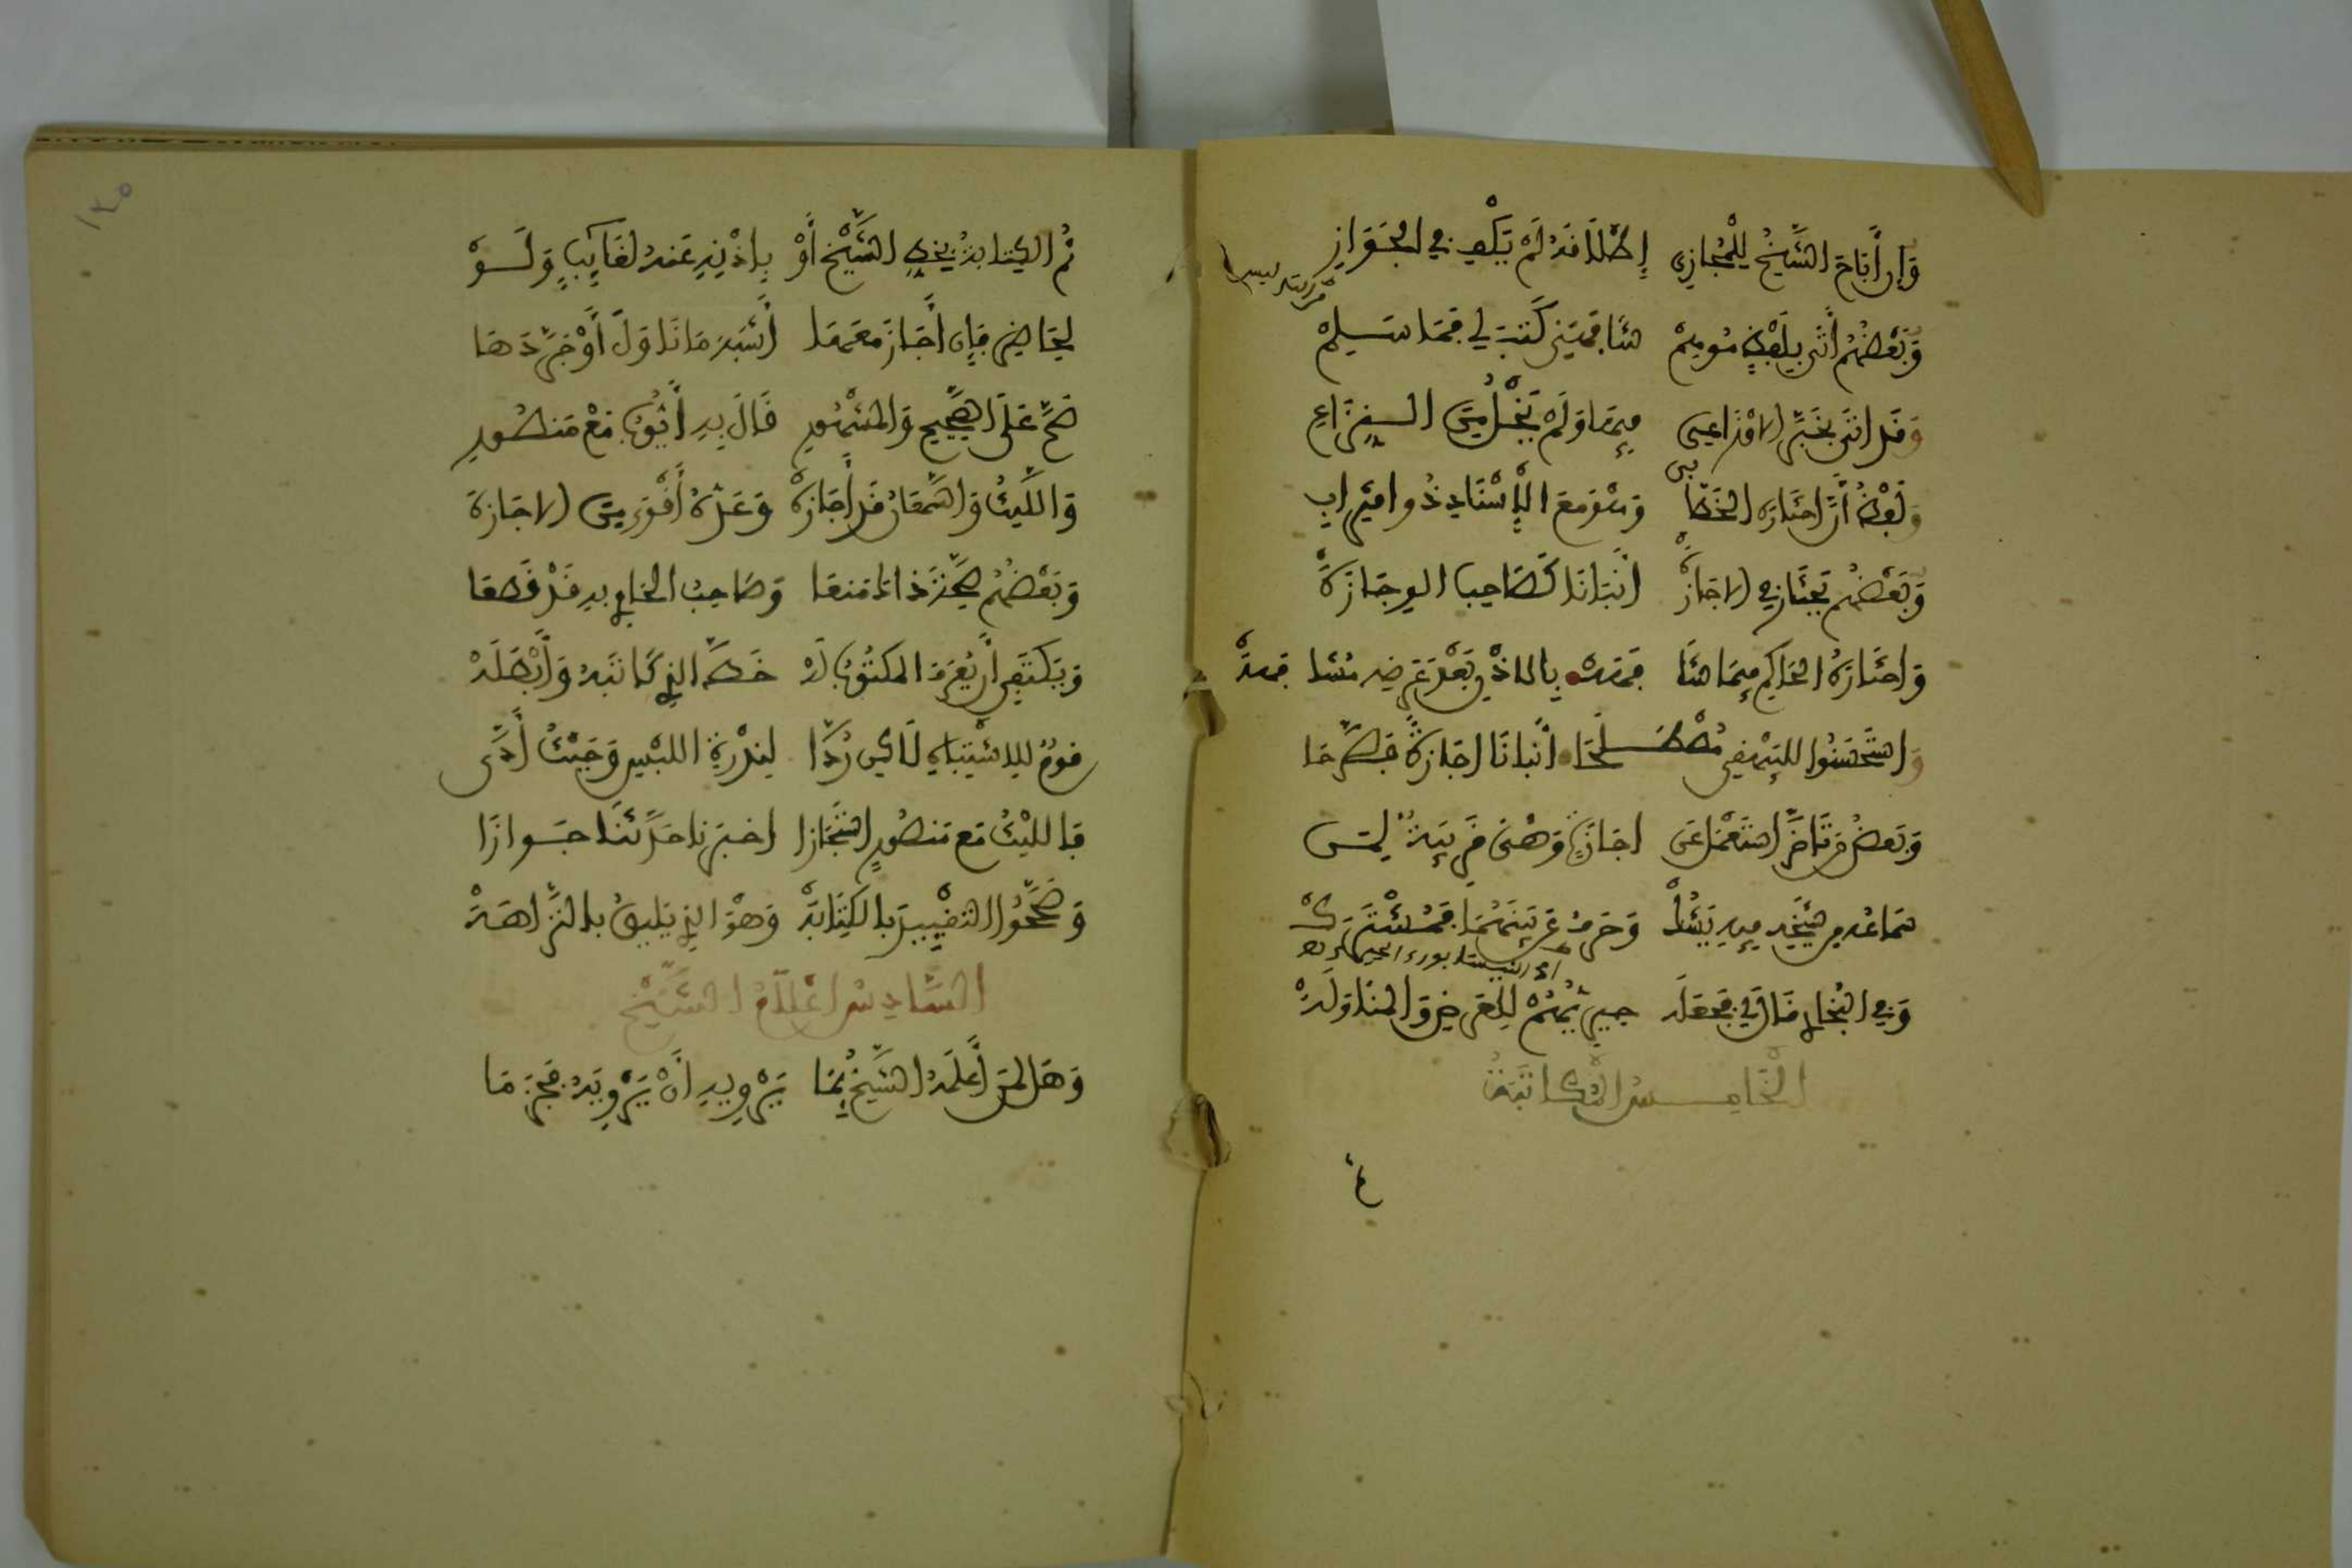 وَإِن أَبَاحَ الشَّيْخُ لِلْمُجَازِ إِطْلَاقَهُ لَمْ يَكْفِ فِي الْجَوَازِ
وَبَعْضُهُم أَتَى بِلَفْظٍ مُوهِمْ شَافَهَنِي كَتَبَ لِي فَمَا سَلِمْ
وَقَد اتَى بِخَبَّرَ الاوْزَاعِي فِيهَا وَلَمْ يَخْلُ مِنَ النِّزَاعِ
وَلَفْظُ أَنَّ اخْتَارَهُ الْخَطَّابِي وَهْوَ مَعَ الْإِسْنَادِ ذُو اقْتِرَابِ
وَبَعْضُهُم يَخْتَارُ فِي الاجَازَةْ انْبَأَنَا كَصَاحِبِ الوِجَازَةْ
وَاخْتَارَهُ الْحَاكِمُ فِيمَا شَافَهَهْ بِالاذْنِ بَعْدَ عَرْضِهِ مُشَافَهَهْ
وَاسْتَحْسَنُوا لِلبَيْهَقِي مُصْطَلَحَا أَنْبَانَا اجَازَةً فَصَرَّحَا
وَبَعْضُ مَن تَأَخَّرَ اسْتَعْمَلَ عَن اجَازَةٍ وَهْيَ قَرِيبَةٌ لِمَن
سَمَاعُهُ مِن شَيْخِهِ فِيهِ يَشُكّْ وَحَرْفُ عَن بَيْنَهُمَا فَمُشْتَرَكْ
وَفِي الْبُخَارِي قَالَ لِي فَجَعَلَهْ حِيرِيُّهُمْ لِلْعَرْضِ وَالْمُنَاوَلَهْ
الْخَامِسُ الْمُكَاتَبَةُ
ثُمَّ الكِتَابَةُ بِخَطِّ الشَّيْخِ أَوْ بِإِذْنِهِ عَنْهُ لِغَايِبٍ وَلَوْ
لِحَاضِرٍ فَإِن أَجَازَ مَعَهَا أَشْبَهَ مَا نَاوَلَ أَوْ جَرَّدَهَا
صَحَّ عَلَى الصَّحِيحِ وَالْمَشْهُورِ قَالَ بِهِ أَيُّوبُ مَعْ مَنْصُورِ
وَاللَّيْثُ وَالسَّمْعَانُ قَد أَجَازَهْ وَعَدَّهُ أَقْوَى مِنَ الاجَازَةْ
وَبَعْضُهُم صِحَّةَ ذَاكَ مَنَعَا وَصَاحِبُ الْحَاوِي بِهِ قَدْ قَطَعَا
وَيَكْتَفِي أَن يَعْرِفَ الْمَكْتُوبُ لَهْ خَطَّ الذِي كَاتَبَهُ وَأَبْطَلَهْ
قَوْمٌ لِلِاشْتِبَاهِ لَاكِن رُدَّا لِنُدْرَةِ اللَّبْسِ وَحَيْثُ أَدَّى
فَالليْثُ مَع مَنْصُورٍ اسْتَجَازَا اخْبَرَنَا حَدَّثَنَا جَوَازَا
وَصَحَّحُوا التَّقْيِيدَ بِالْكِتَابَهْ وَهْوَ الذِي يَلِيقُ بِالنَّزَاهَهْ
السَّادِسُ اعْلَامُ الشَّيْخِ
وَهَل لِمَن أَعْلَمَهُ الشَّيْخُ بِمَا يَرْوِيهِ أَنْ يَرْوِيَهُ فَجَزَمَا